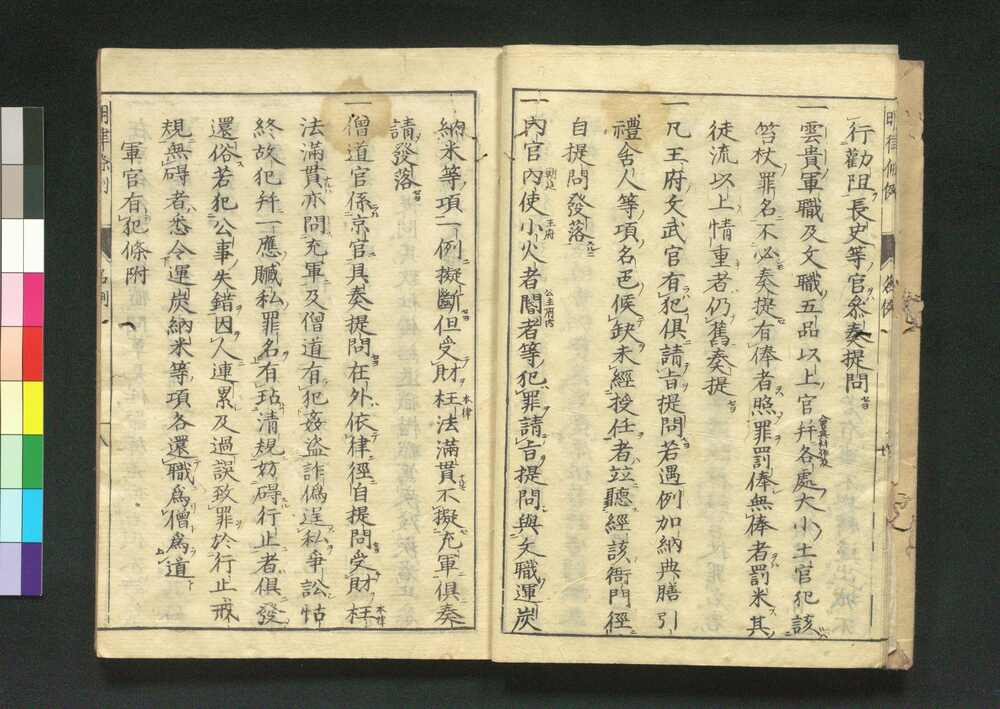 行勸阻長史等官叅奏提問
一雲貴軍職及文職五品以上官幷各處大小土官犯該
笞杖罪名不必奏提有俸者照罪罰俸無俸者罰米其
徒流以上情重者仍舊奏提
一凡王府文武官有犯俱請旨提問若遇例加納典膳引
禮舍人等項名色候缺未經授任者竝聽經該衙門徑
自提問發落
一內官內使小火者閽者等犯罪請旨提問與文職運炭
納米等項一例擬斷但受財枉法滿貫不擬充軍俱奏
請發落
一僧道官係京官具奏提問在外依律徑自提問受財枉
法滿貫亦問充軍及僧道有犯姦盜詐僞逞私爭訟怙
終故犯幷一應贓私罪名有玷清規妨碍行止者俱發
還俗若犯公事失錯因人連累及過誤致罪於行止戒
規無碍者悉令運炭納米等項各還職爲僧爲道
軍官有犯條附
明律條例
名例
八